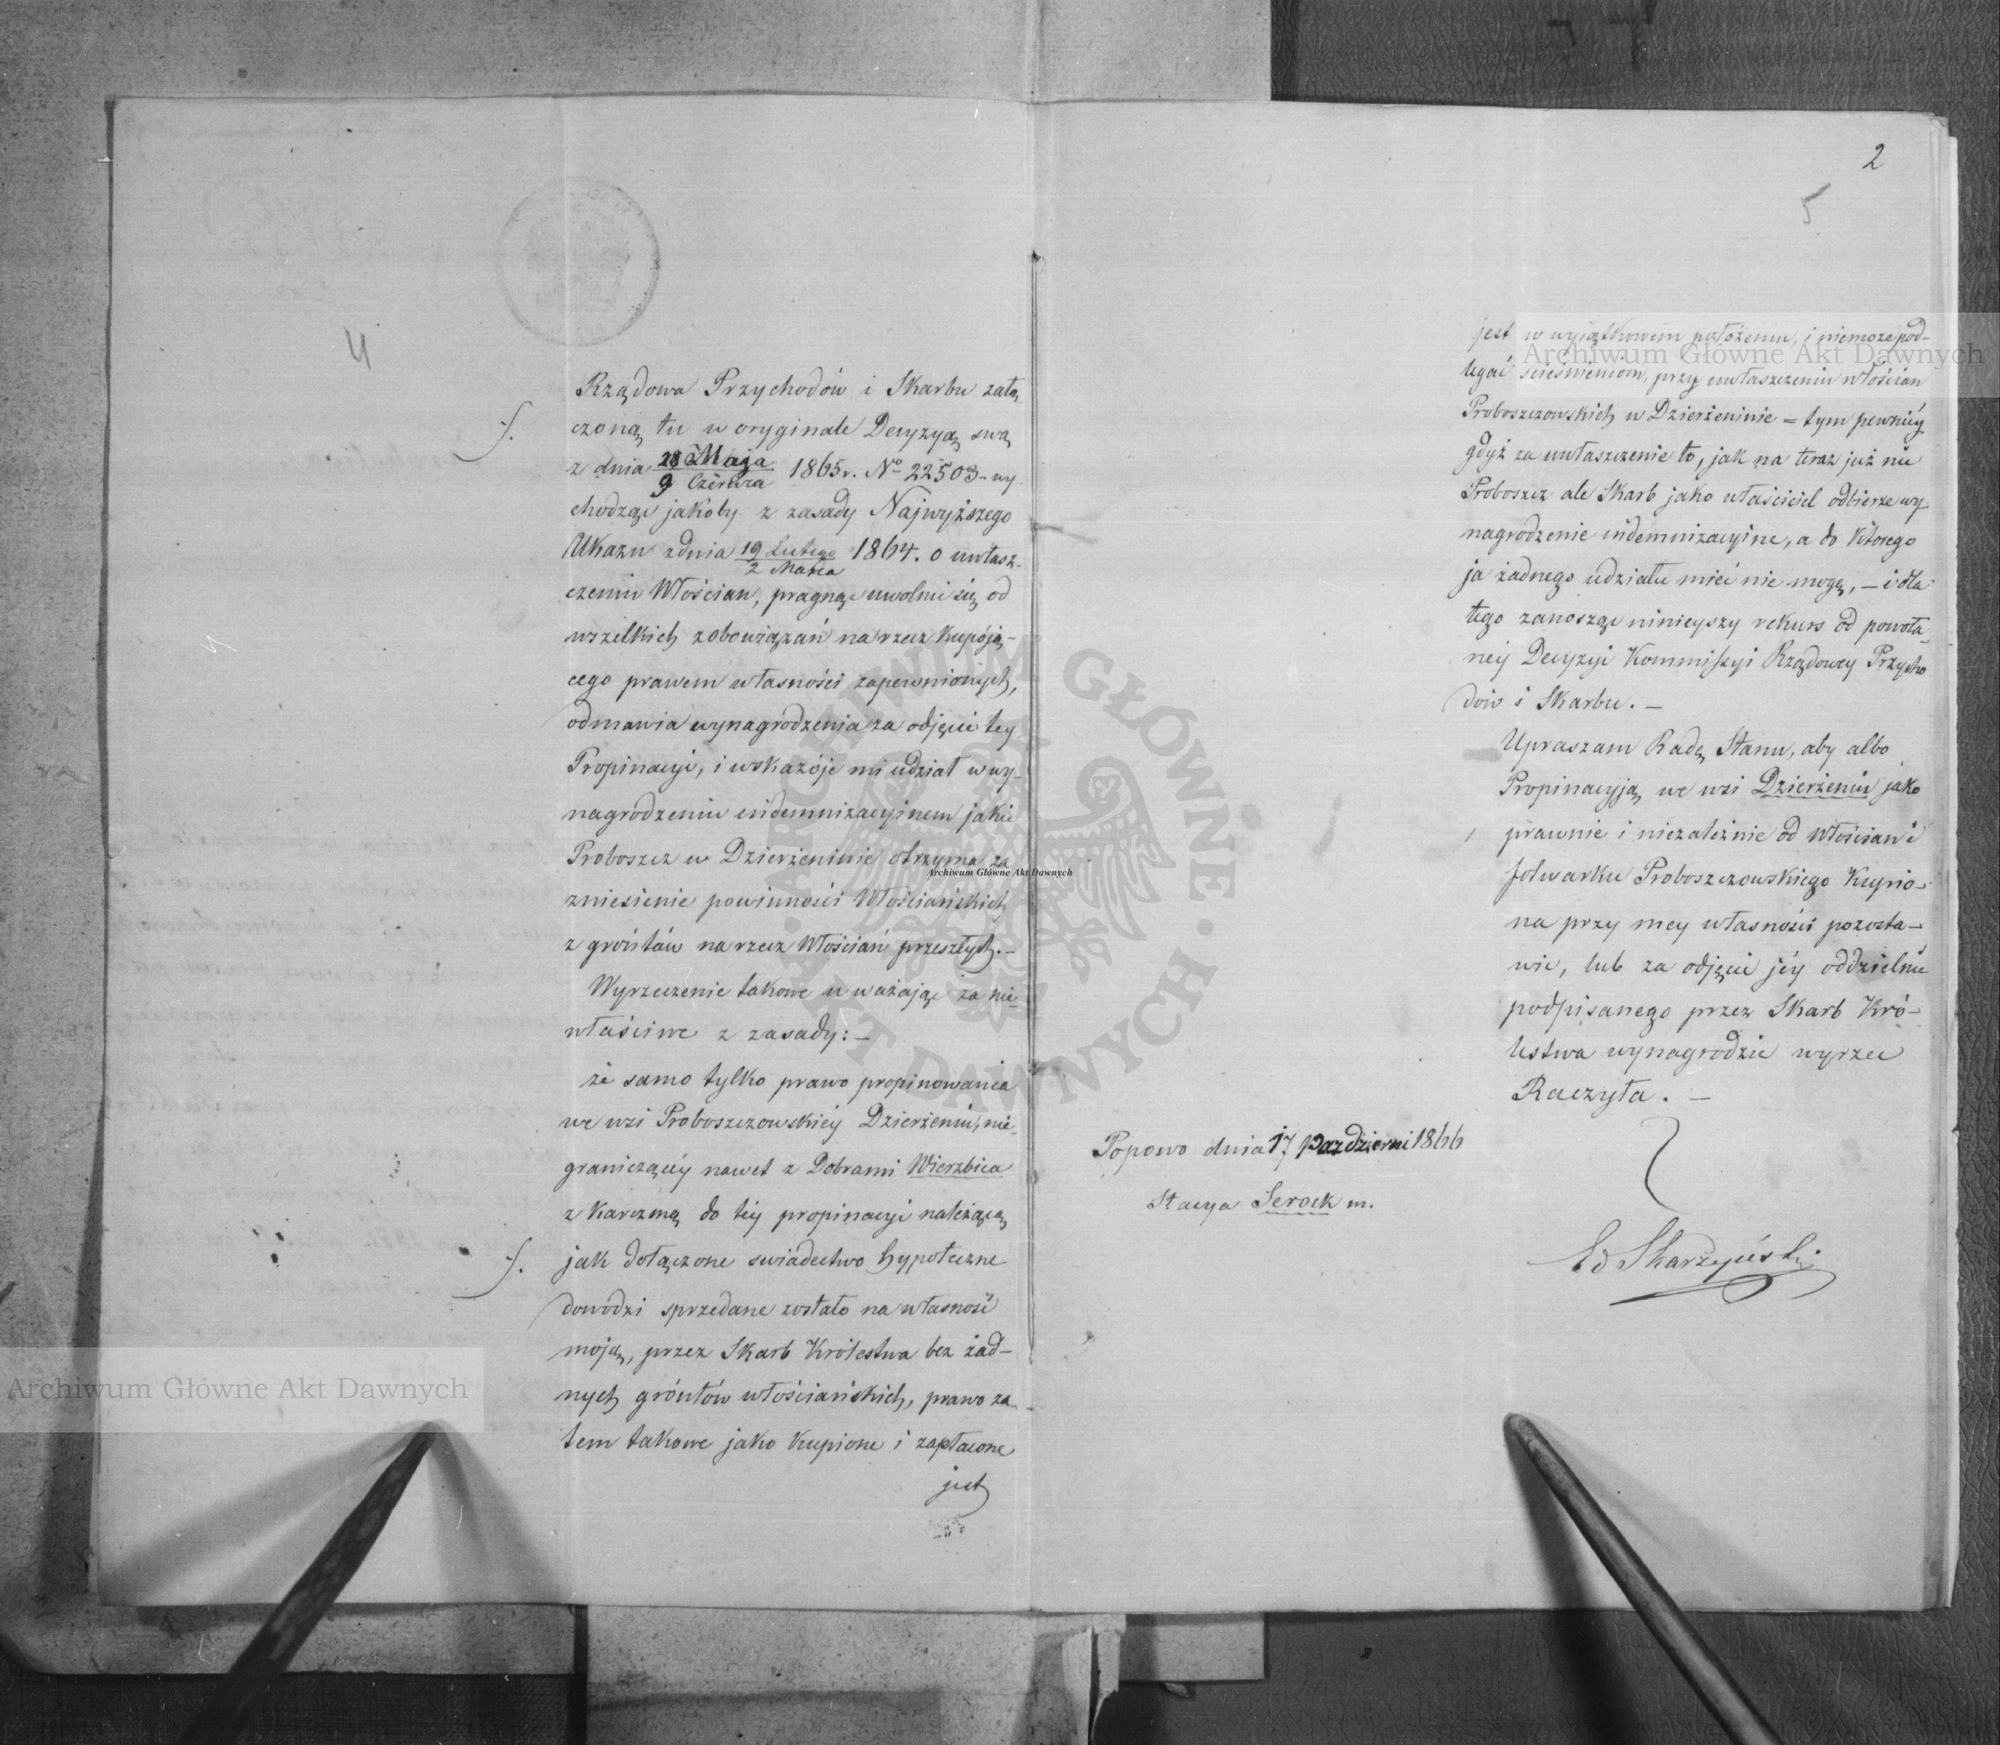 4
Rządowa Przychodów i Skarbu załą
czoną tu w oryginale Decyzyą swą
z dnia 28 Maja / 9 Czerwca 1865r. No 22503 - wy-
chodząc jakoby z zasady Najwyższego
Ukazu zdnia 19 Lutego / 2 Marca 1864. o uwłasz-
czeniu Włościan, pragnąc uwolnić się od
wszelkich zobowiązań na rzecz kupują-
cego prawem własności zapewnionych,
odmawia wynagrodzenia za odjęcie tey
Propinacyi, i wskazóje mi udział w wy-
nagrodzeniu indemnizacyinem jakie
Proboszcz w Dzierżeninie otrzyma za
zniesienie powinności Włościańskich
z gróntów na rzecz Włościań przeszłych. -
Wyrzeczenie takowe uważając za nie-
właściwe z zasady: -
że samo tylko prawo propinowania
we wsi Proboszczowskiéy Dzierżenin, nie-
graniczącéy nawet z Dobrami Wierzbica
z karczmą do téy propinacyi należącą
jak dołączone swiadectwo hypoteczne
dowodzi sprzedane zostało na własność
moją, przez Skarb Królestwa bez żad-
nych gróntów włościańskich, prawo za
tem takowe jako kupione i zapłacone
jest
2
5
jest w wyiątkowem położeniu, i niemoże pod-
legać scieśnieniom, przy uwłaszczeniu włościan
Proboszczowskich w Dzierżeninie = tym pewniéy
gdyż za uwłaszczenie to, jak na teraz już nie
Proboszcz ale Skarb jako właściciel odbierze wy
nagrodzenie indemnizacyine, a do którego
ja żadnego udziału mieć nie mogę, - i dla
tego zanosząc niniejszy rekurs od powoła
néy Decyzyi Kommissyi Rządowey Przycho
dów i Skarbu. -
Upraszam Radę Stanu, aby albo
Propinacyją we wsi Dzierżenin jako
prawnie i niezależnie od włościan i
folwarku Proboszczowskiego kupio-
na przy mey własności pozosta-
wić, lub za odjęcie jéy oddzielnie
podpisanego przez Skarb Kró-
lestwa wynagrodzić wyrzec
Raczyła. -
Popowo dnia 17 Październi 1866
Stacya Serock m.
Ed Skarżyński
Archiwum Główne Akt Dawnych
Archiwum Główne Akt Dawnych
Archiwum Główne Akt Dawnych
ARCHIWUM GŁÓWNE · AKT DAWNYCH ·